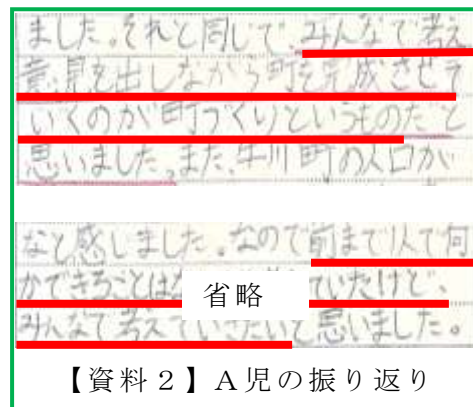 ました。それと同じで、みんなで考え
意見を出しながら町を完成させて
いくのが町づくりというものだと
思いました。また、牛川町の人口が
なと感じました。なので前まで1人で何
かできることは ていたけど、
省略
みんなで考えていきたいと思いました。
【資料2】A児の振り返り